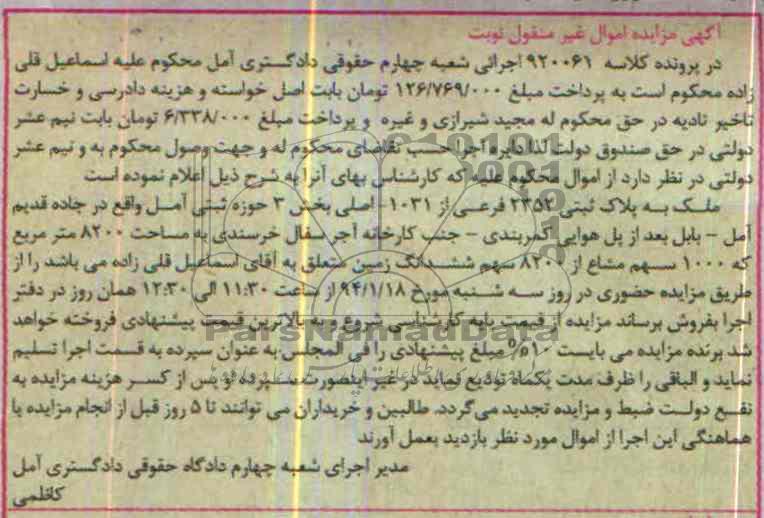 آگهی مزایده اموال غیر منقول نوبت
در پرونده کلاسه ۹۲۰۰۶۱ اجرائی شعبه چهارم حقوقی دادگستری آمل محکوم علیه اسماعیل قلی
زاده محکوم است به پرداخت مبلغ ۱۲۶/۷۶۹/۰۰۰ تومان بابت اصل خواسته و هزینه دادرسی و خسارت
تاخیر تادیه در حق محکوم له مجید شیرازی و غیره و پرداخت مبلغ ۶/۳۳۸/۰۰۰ تومان بابت نیم عشر
دولتی در حق صندوق دولت لذا دایره اجرا حسب تقاضای محکوم له و جهت وصول محکوم به و نیم عشر
دولتی در نظر دارد از اموال محکوم علیه که کارشناس بهای آنرا به شرح ذیل اعلام نموده است
ملک به پلاک ثبتی ۲۳۵۲ فرعی از ۱۰۳۱- اصلی بخش ۳ حوزه ثبتی آمل واقع در جاده قدیم
آمل - بابل بعد از پل هوایی کمربندی - جنب کارخانه آجر سفال خرسندی به مساحت ۸۲۰۰ متر مربع
که ۱۰۰۰ سهم مشاع از ۸۲۰۰ سهم ششدانگ زمین متعلق به آقای اسماعیل قلی زاده می باشد را از
طریق مزایده حضوری در روز سه شنبه مورخ ۹۴/۱/۱۸ از ساعت ۱۱:۳۰ الی ۱۲:۳۰ همان روز در دفتر
اجرا بفروش برساند مزایده از قیمت پایه کارشناسی شروع و به بالاترین قیمت پیشنهادی فروخته خواهد
شد برنده مزایده می بایست ۱۰% مبلغ پیشنهادی را فی المجلس به عنوان سپرده به قسمت اجرا تسلیم
نماید و الباقی را ظرف مدت یکماه تودیع نماید در غیر اینصورت سپرده او پس از کسر هزینه مزایده به
نفع دولت ضبط و مزایده تجدید می گردد. طالبین و خریداران می توانند تا ۵ روز قبل از انجام مزایده با
هماهنگی این اجرا از اموال مورد نظر بازدید بعمل آورند
مدیر اجرای شعبه چهارم دادگاه حقوقی دادگستری آمل
کاظمی
ParsNamadData